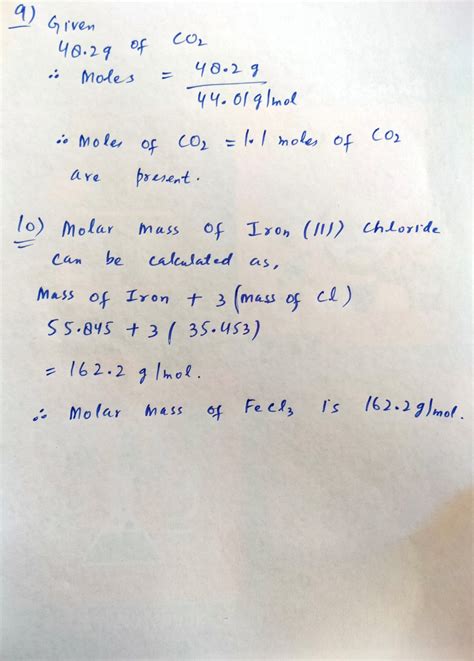 9) Given
48.2g of CO2
∴ Moles = 48.2 g
44.01g/mol
∴ Moles of CO2 = 1.1 moles of CO2
are present.
10) Molar mass of Iron (III) chloride
can be calculated as,
Mass of Iron + 3 (mass of cl)
55.845 + 3 ( 35.453)
= 162.2 g/mol.
∴ Molar Mass of FeCl3 is 162.2g/mol.